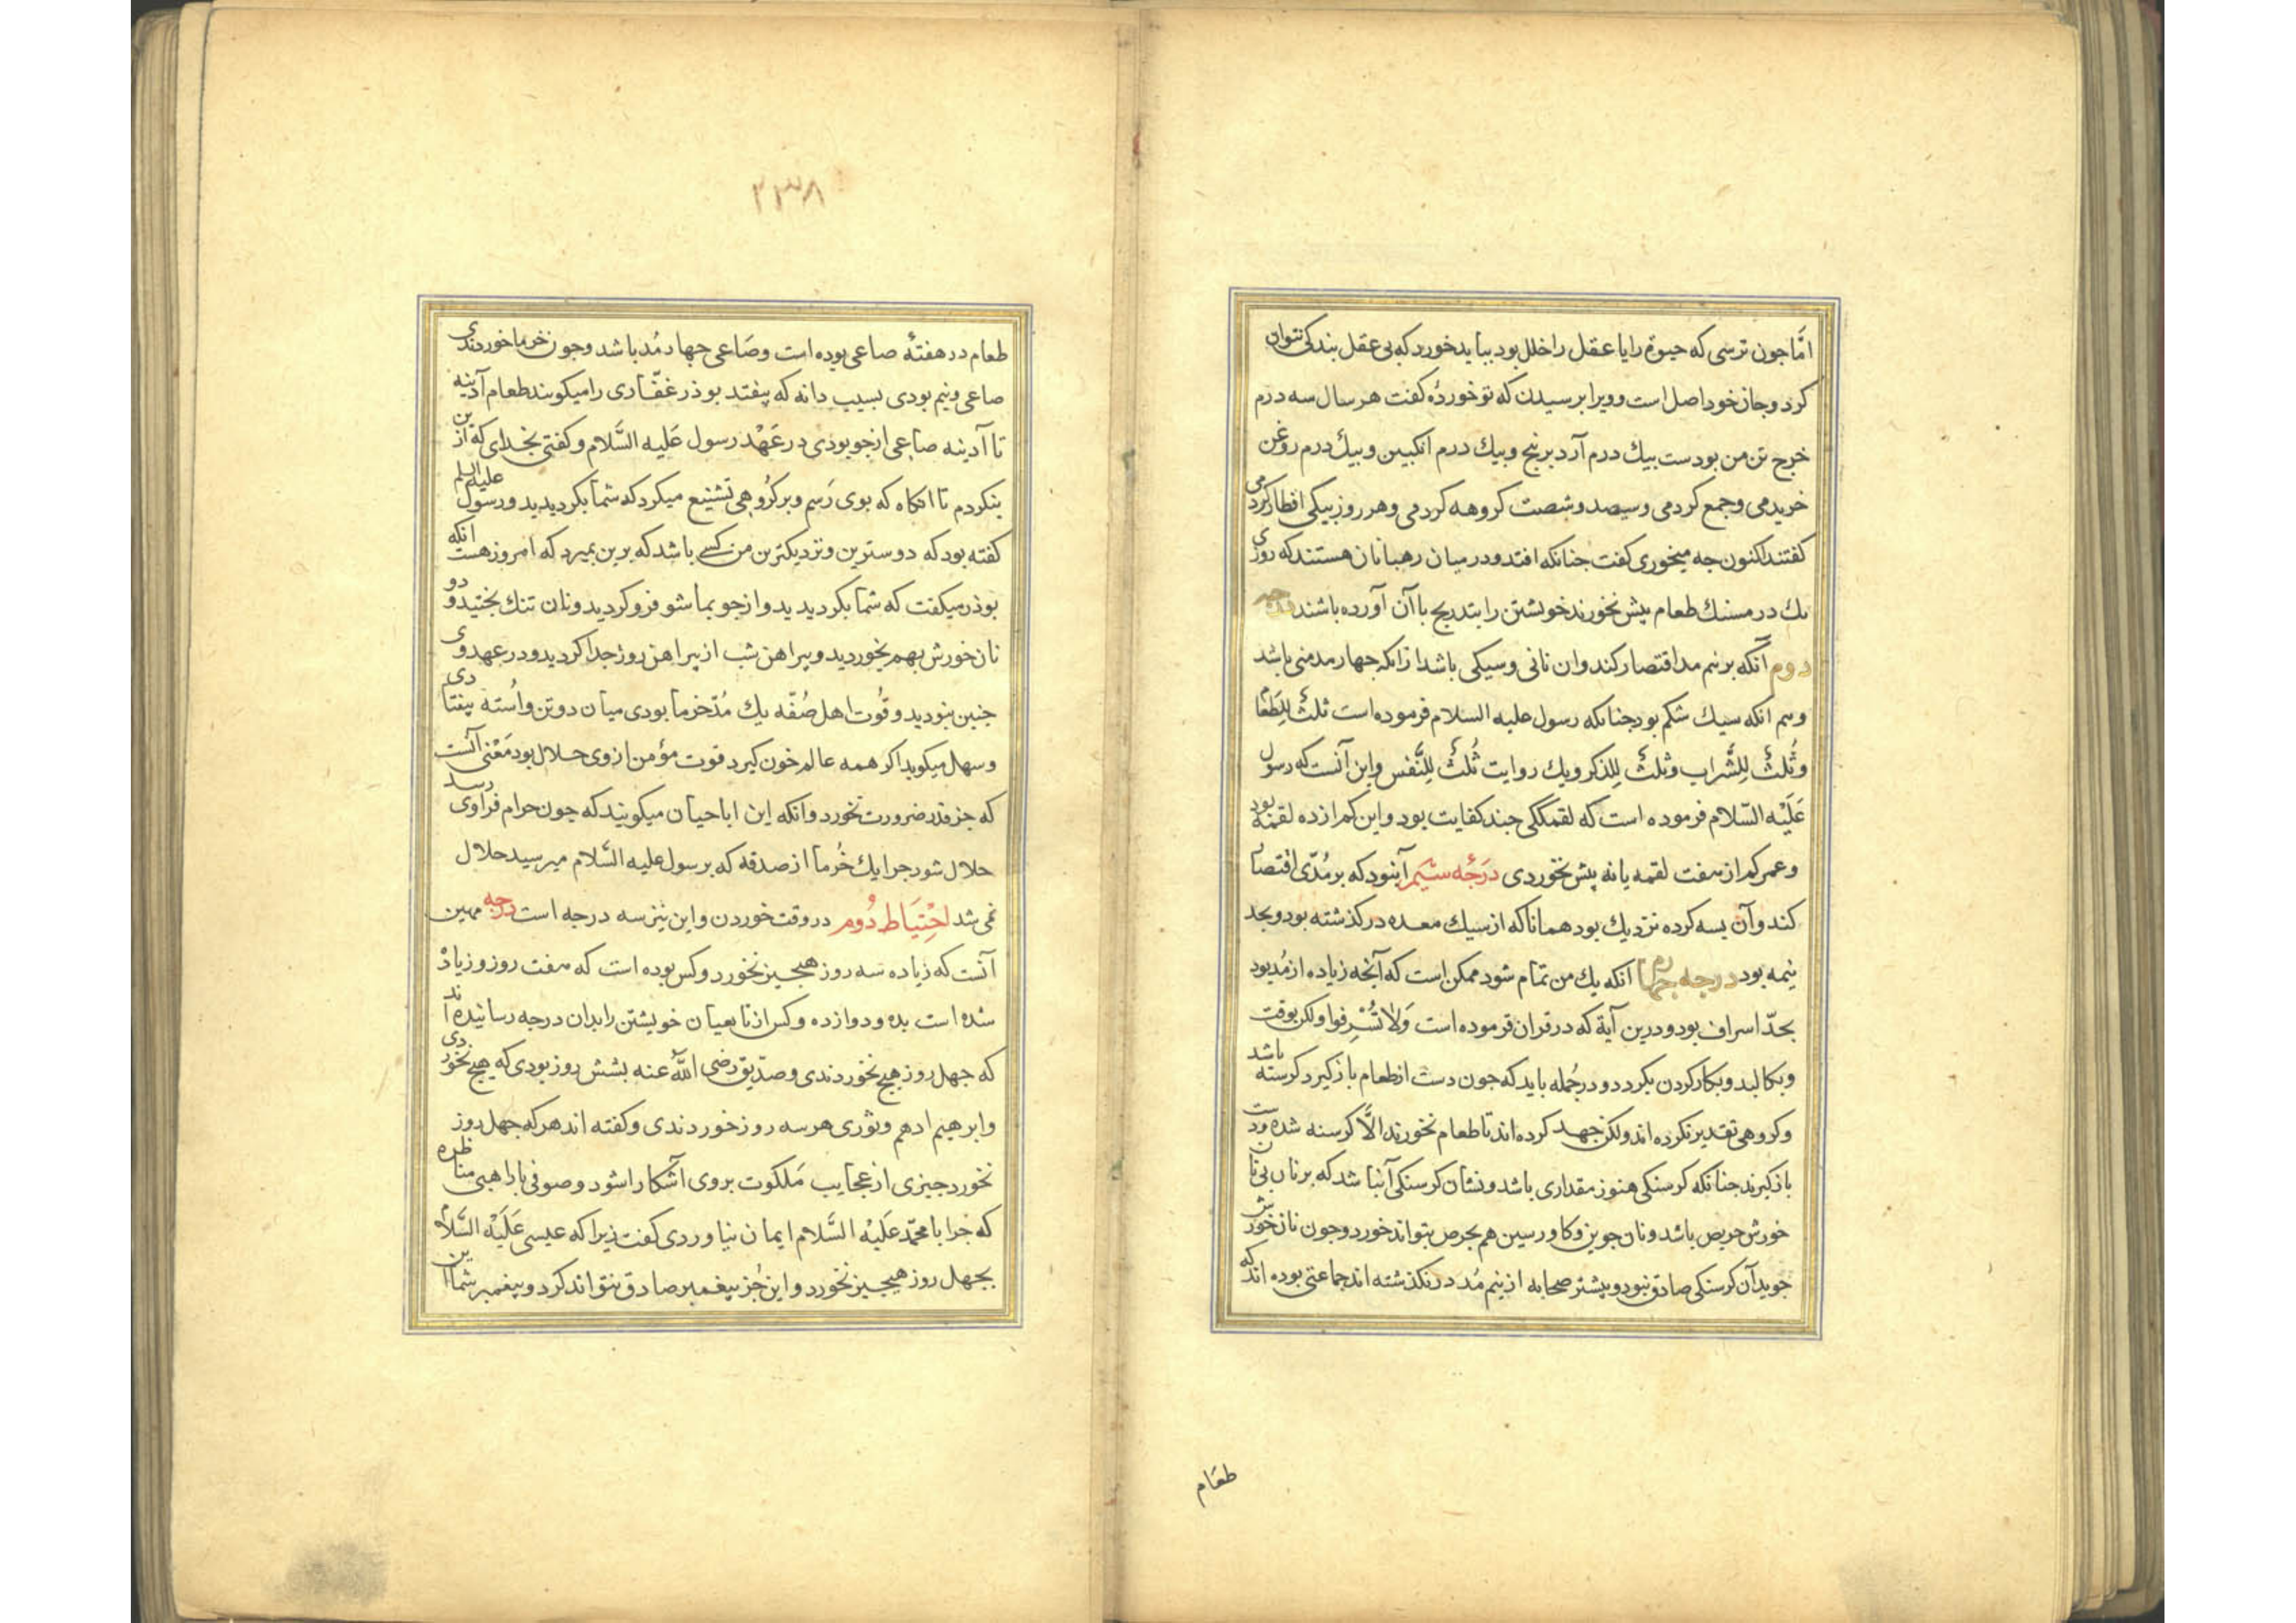 امّا جون ترسی که حیوة را یا عقل را خلل بود بباید خورد که بی عقل بندکی نتوان
کرد و جان خود اصل است و ویرا برسیدن که تو خوردهٔ کفت هر سال سه درم
خرج تن من بودست بیك درم آرد برنج و بیك درم انکبین و بیك درم روغن
خریدمی و جمع کردمی و سیصد و شصت کروهه کردمی و هر روز بیکی افطار کردمی
کفتند اکنون جه میخوری کفت جنانکه افتد و در میان رهبانان هستند که روزی
یك درمسنك طعام بیش نخورند خویشتن را بتدریج باآن آورده باشند درجه
دوم آنکه بر نیم مد اقتصار کند و ان نانی و سیکی باشد ازانکه جهار مد منی باشد
و سم انکه سیك شکم بود جنانکه رسول علیه السلام فرموده است ثلثٌ لِلطَّعام
وثُلثٌ لِلشَّراب وثلثٌ لِلذکر و بیك روایت ثُلثٌ لِلنَّفس و این آنست که رسول
عَلَیْه السّلام فرموده است که لقمککی جند کفایت بود و این کم از ده لقمه بود
و عمر کم از هفت لقمه یا نه بیش نخوردی دَرَجَه سیم آنبود که بر مُدّی اقتصار
کند و آن بسه کرده نزدیك بود همانا که از سیك معده در کذشته بود و بحد
نیمه بود درجه جهارم انکه یك من تمام شود ممکن است که آنجه زیاده از مُد بود
بحدّ اسراف بود و درین آیة که در قران فرموده است وَلا تُسْرِفوا ولکن بوقت
و بکالبد و بکار کردن بکردد و در جُمله باید که جون دست از طعام باز کیرد کرسنه باشد
و کروهی تقدیر نکرده اند ولکن جهد کرده اند تا طعام نخورند الّا کرسنه شده و دست
باز کیرند جنانکه کرسنکی هنوز مقداری باشد و نشان کرسنکی آنباشد که بر نان بی نان
خورش حریص باشد و نان جوین و کاورسین هم بحرص بتواند خورد و جون نان خورش
جوید آن کرسنکی صادق نبود و بیشتر صحابه از نیم مُد در نکذشته اند جماعتی بوده اند که
طعام
۲۳۸
طعام در هفتهٔ صاعی بوده است و صَاعی جهار مُد باشد و جون خرما خوردندی
صاعی و نیم بودی بسبب دانه که بیفتد بوذر غفّاری را میکویند طعام آدینه
تا آدینه صاعی از جو بودی در عَهْد رسول عَلیه السَّلام و کفتی بخدای که ازین
بنکردم تا انکاه که بوی رَسم و بر کرُوهی تشنیع میکرد که شما بکردیدید و رسول علیه السلم
کفته بود که دوسترین و نزدیکترین من کسی باشد که برین بمیرد که امروز هست انکه
بوذر میکفت که شما بکردیدید و از جو بماشو فرو کردید و نان تنك بختید و دو
نان خورش بهم بخوردید و بیراهن شب از بیراهن روز جدا کردید و در عهد وی
جنین نبودید و قُوت اهل صُفّه یك مُدّ خرما بودی میان دو تن و اُسته بیفتادی
و سهل میکوید اکر همه عالم خون کیرد قوت مؤمن از وی حلال بود مَعْنی آنست
که جز قدر ضرورت نخورد و انکه این اباحیان میکویند که جون حرام فرا وی رسد
حلال شود جرا یك خُرما از صدقه که برسول علیه السّلام میرسید حلال
نمی شد اِحْتِیَاط دُوم در وقت خوردن و این نیز سه درجه است درجه مهین
آنست که زیاده سه روز هیجیز نخورد و کس بوده است که هفت روز و زیادْ
شده است بده و دوازده و کس از تابعیان خویشتن را بدان درجه رسانیده اند
که جهل روز هیج نخوردندی و صدّیق رضی اللّٰه عنه بشش روز بودی که هیج نخوردی
و ابرهیم ادهم و ثوری هر سه روز خوردندی و کفته اند هر که جهل روز
نخورد جیزی از عجایب مَلکوت بروی آشکارا شود و صوفی با راهبی مناظره
که جرا با محمّد عَلَیْه السَّلام ایمان نیاوردی کفت زیرا که عیسی عَلَیْه السَّلام
بجهل روز هیجیز نخورد و این جُز بیغمبر صادق نتواند کرد و بیغمبر شما این